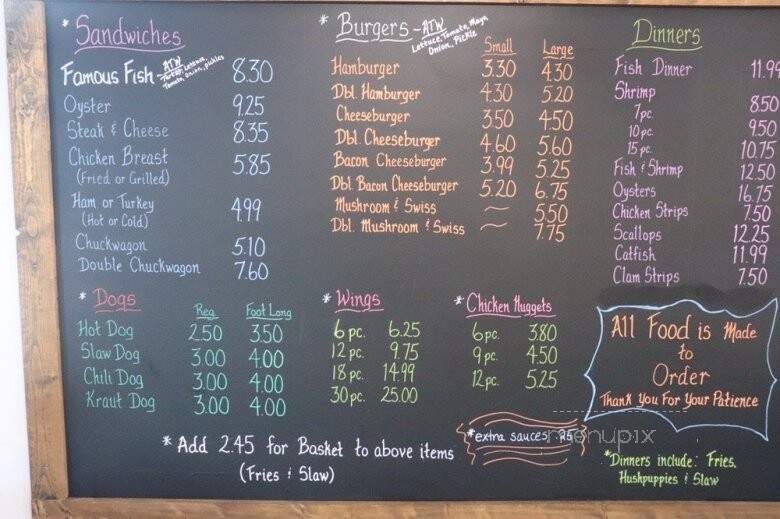 * Sandwiches
Famous Fish - ATW 8.30
Lettuce,
Tomato, Onion, Pickles
Oyster 9.25
Steak & Cheese 8.35
Chicken Breast 5.85
(Fried or Grilled)
Ham or Turkey 4.99
(Hot or Cold)
Chuckwagon 5.10
Double Chuckwagon 7.60
* Burgers - ATW
Lettuce, Tomato, Mayo
Onion, Pickle
Small Large
Hamburger 3.30 4.30
Dbl. Hamburger 4.30 5.20
Cheeseburger 3.50 4.50
Dbl. Cheeseburger 4.60 5.60
Bacon Cheeseburger 3.99 5.25
Dbl. Bacon Cheeseburger 5.20 6.75
Mushroom & Swiss ~ 5.50
Dbl. Mushroom & Swiss ~ 7.75
Dinners
Fish Dinner 11.99
Shrimp
7pc. 8.50
10pc. 9.50
15pc. 10.75
Fish & Shrimp 12.50
Oysters 16.75
Chicken Strips 7.50
Scallops 12.25
Catfish 11.99
Clam Strips 7.50
* Dogs
Reg. Foot Long
Hot Dog 2.50 3.50
Slaw Dog 3.00 4.00
Chili Dog 3.00 4.00
Kraut Dog 3.00 4.00
* Wings
6 pc. 6.25
12 pc. 9.75
18 pc. 14.99
30 pc. 25.00
* Chicken Nuggets
6pc. 3.80
9pc. 4.50
12pc. 5.25
All Food is Made
to
Order
Thank You For Your Patience
* Add 2.45 for Basket to above items
(Fries & Slaw)
*extra sauces .25
menupix
*Dinners include: Fries,
Hushpuppies & Slaw